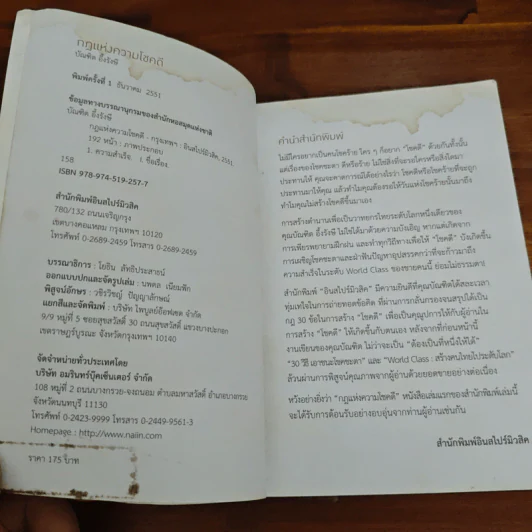 กฎแห่งความโชคดี
บัณฑิต อึ้งรังษี
พิมพ์ครั้งที่ 1 ธันวาคม 2551
ข้อมูลทางบรรณานุกรมของสำนักหอสมุดแห่งชาติ
บัณฑิต อึ้งรังษี
กฎแห่งความโชคดี.- กรุงเทพฯ : อินสไปร์มิวสิค, 2551.
192 หน้า : ภาพประกอบ
1. ความสำเร็จ. I. ชื่อเรื่อง.
158
ISBN 978-974-519-257-7
สำนักพิมพ์อินสไปร์มิวสิค
780/132 ถนนเจริญกรุง
เขตบางคอแหลม กรุงเทพฯ 10120
โทรศัพท์ 0-2689-2459 โทรสาร 0-2689-2459
บรรณาธิการ : โยธิน ลัทธิประสาธน์
ออกแบบปกและจัดรูปเล่ม : นพดล เนียมพัก
พิสูจน์อักษร : วชิรวิชญ์ ปัญญาลักษณ์
แยกสีและจัดพิมพ์ : บริษัท ไพบูลย์อ๊อฟเซต จำกัด
9/9 หมู่ที่ 5 ซอยสุขสวัสดิ์ 30 ถนนสุขสวัสดิ์ แขวงบางปะกอก
เขตราษฎร์บูรณะ จังหวัดกรุงเทพฯ 10140
จัดจำหน่ายทั่วประเทศโดย
บริษัท อมรินทร์บุ๊คเซ็นเตอร์ จำกัด
108 หมู่ที่ 2 ถนนบางกรวย-จงถนอม ตำบลมหาสวัสดิ์ อำเภอบางกรวย
จังหวัดนนทบุรี 11130
โทรศัพท์ 0-2423-9999 โทรสาร 0-2449-9561-3
Homepage : http://www.naiin.com
ราคา 175 บาท
คำนำสำนักพิมพ์
ไม่มีใครอยากเป็นคนโชคร้าย ใคร ๆ ก็อยาก "โชคดี" ด้วยกันทั้งนั้น
แต่เรื่องของโชคชะตา ดีหรือร้าย ไม่ใช่สิ่งที่จะรอใครหรือสิ่งใดมา
ประทานให้ คุณจะคาดการณ์ได้อย่างไรว่า โชคดีหรือโชคร้ายที่จะถูก
ประทานมาให้คุณ แล้วทำไมคุณต้องรอให้วันแห่งโชคร้ายนั้นมาถึง
ทำไมคุณไม่สร้างโชคดีขึ้นมาเอง
การสร้างตำนานเพื่อเป็นวาทยกรไทยระดับโลกหนึ่งเดียวของ
คุณบัณฑิต อึ้งรังษี ไม่ได้มาด้วยความบังเอิญ หากแต่เกิดจาก
การเพียรพยายามฝึกฝน และทำทุกวิถีทางเพื่อให้ "โชคดี" บังเกิดขึ้น
การเผชิญโชคชะตาและฝ่าฟันปัญหาอุปสรรคกว่าที่จะก้าวมาถึง
ความสำเร็จในระดับ World Class ของชายคนนี้ ย่อมไม่ธรรมดา
สำนักพิมพ์ "อินสไปร์มิวสิค" มีความยินดีที่คุณบัณฑิตได้สละเวลา
ทุ่มเทใจในการถ่ายทอดข้อคิด ที่ผ่านการกลั่นกรองจนสรุปได้เป็น
กฎ 30 ข้อในการสร้าง "โชคดี" เพื่อเป็นคุณูปการให้กับผู้อ่านใน
การสร้าง "โชคดี" ให้เกิดขึ้นกับตนเอง หลังจากที่ก่อนหน้านี้
งานเขียนของคุณบัณฑิต ไม่ว่าจะเป็น "ต้องเป็นที่หนึ่งให้ได้"
"30 วิธี เอาชนะโชคชะตา" และ "World Class : สร้างคนไทยไประดับโลก"
ล้วนผ่านการพิสูจน์คุณภาพจากผู้อ่านด้วยยอดขายอย่างต่อเนื่อง
หวังอย่างยิ่งว่า "กฎแห่งความโชคดี" หนังสือเล่มแรกของสำนักพิมพ์เล่มนี้
จะได้รับการต้อนรับอย่างอบอุ่นจากท่านผู้อ่านเช่นกัน
สำนักพิมพ์อินสไปร์มิวสิค